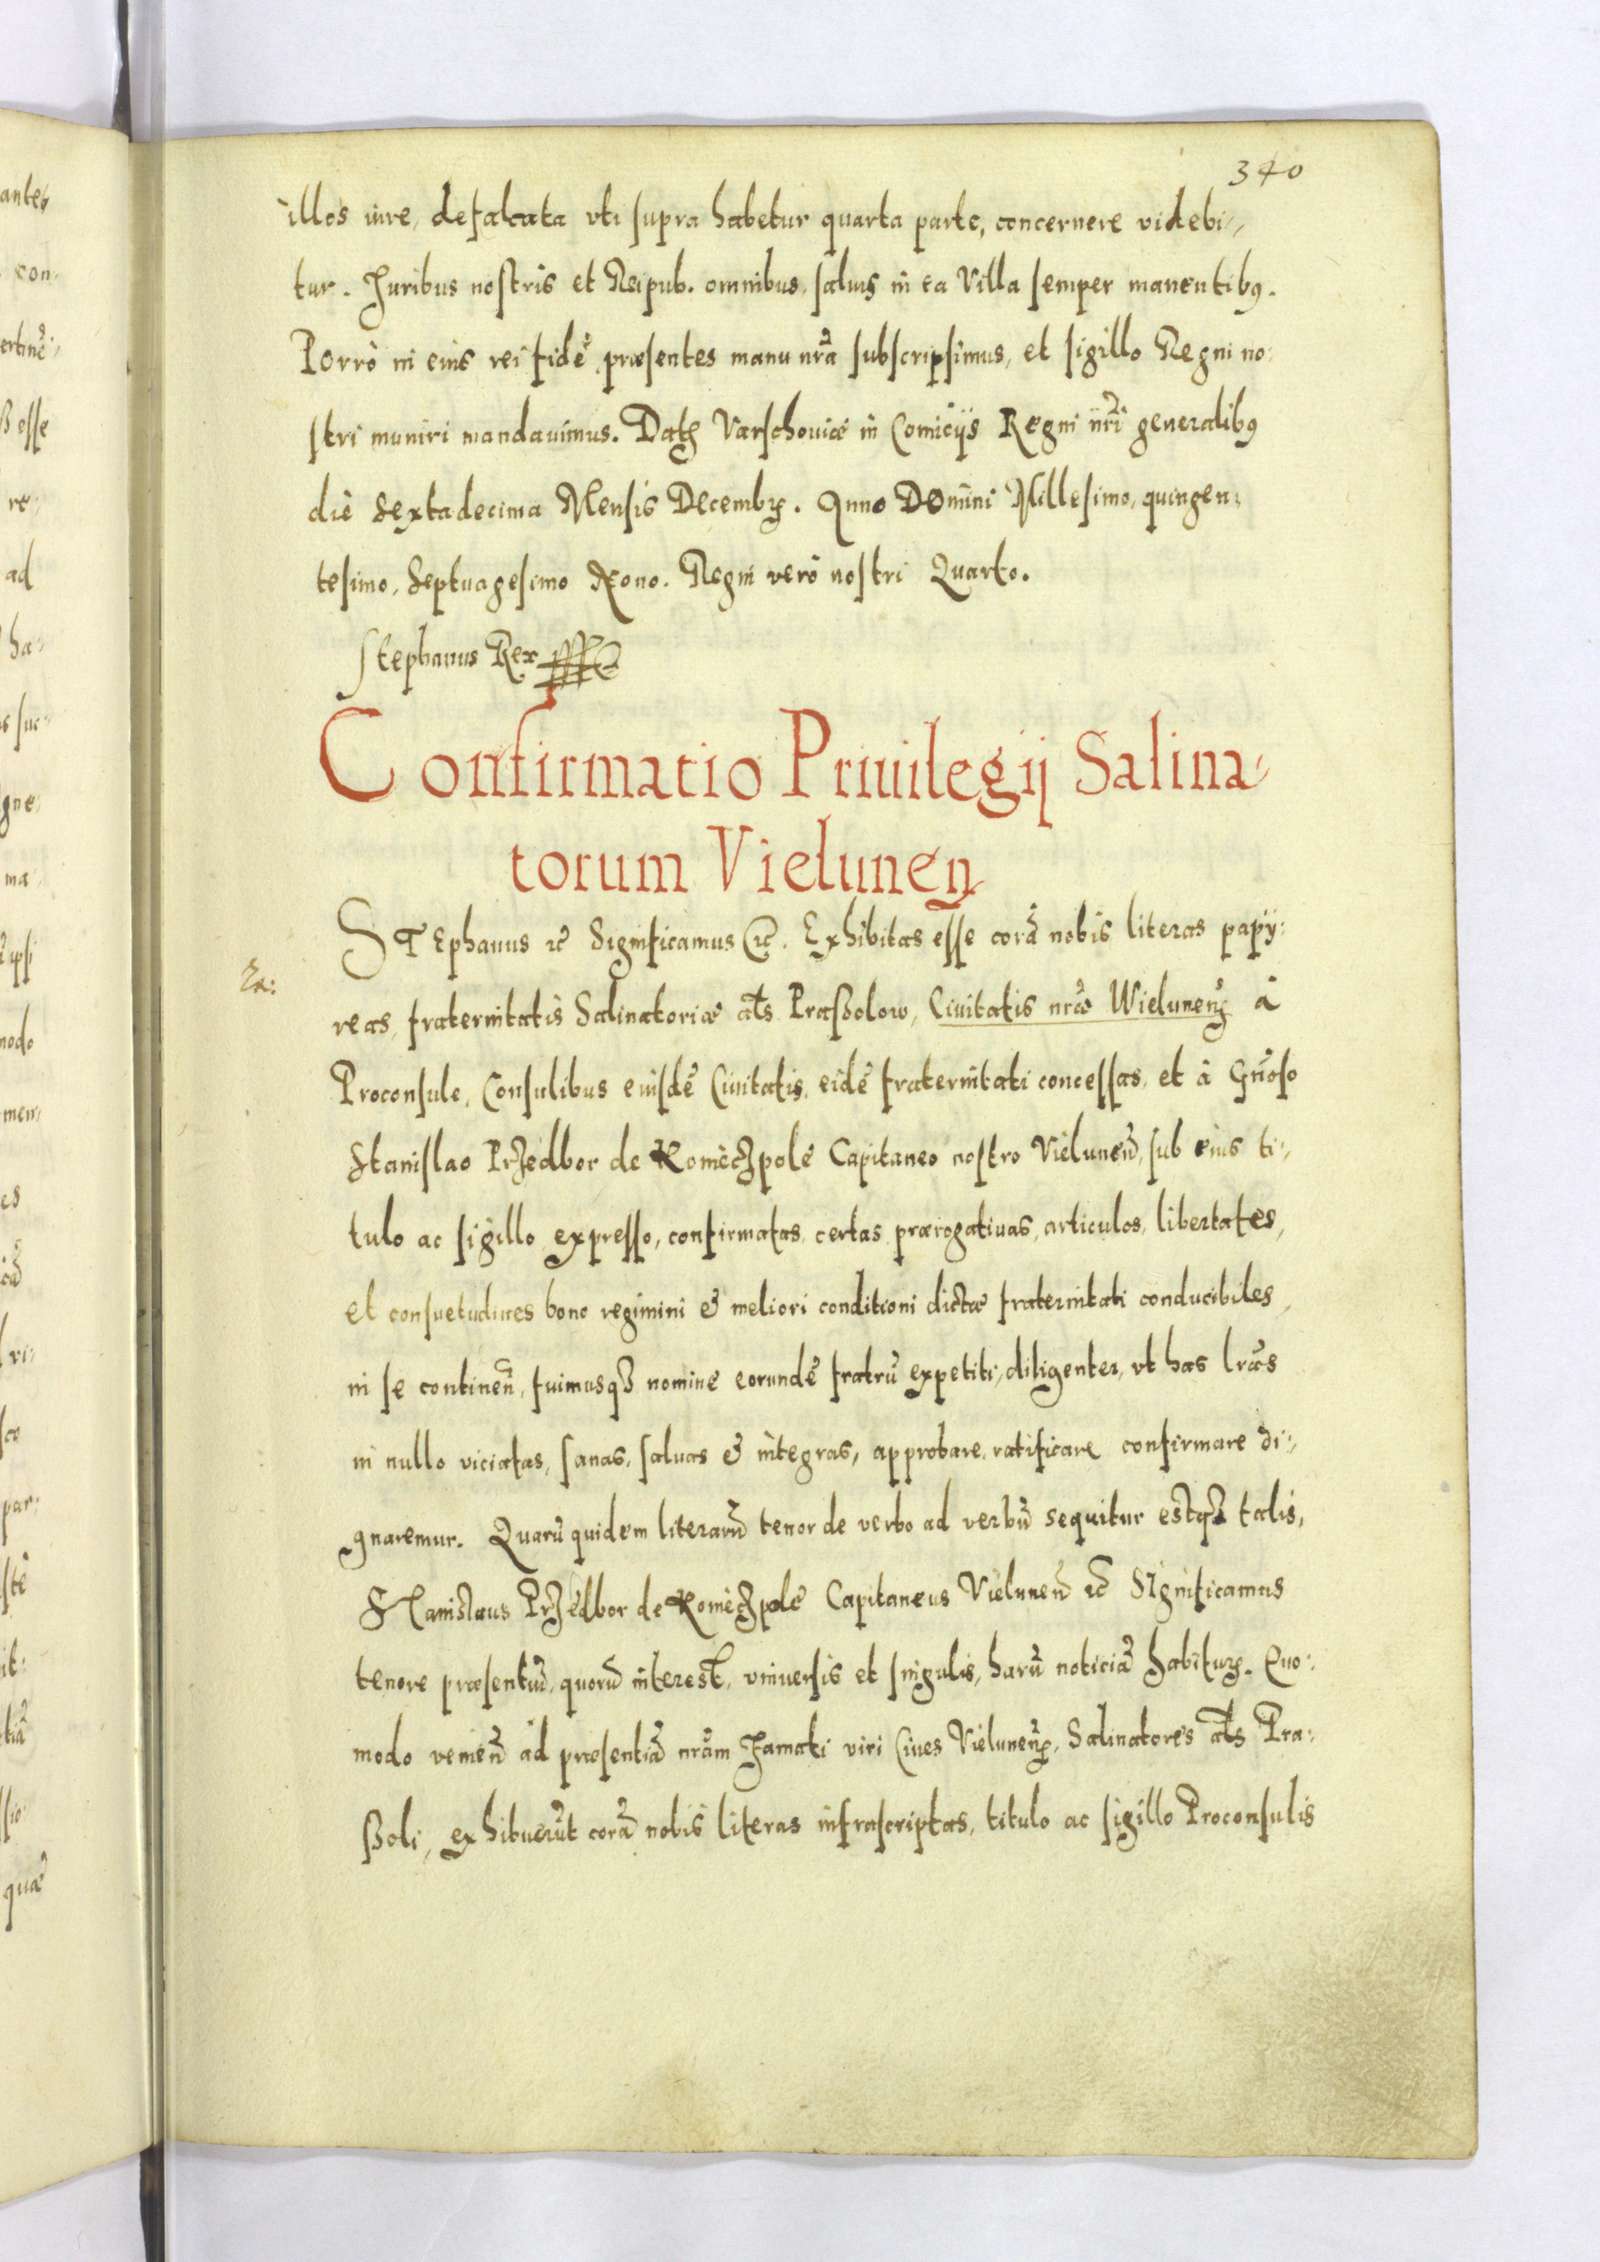 340
illos iure, defalcata vti supra habetur quarta parte, concernere videbi-
tur. Juribus nostris et Reipub. omnibus, saluis in ea Villa semper manentibꝯ.
Porrò in eius rei fidē, præsentes manu nr̃a subscripsimus, et sigillo Regni no:
stri muniri mandauimus. Datꝫ Varschouiæ in Comicijs Regni nr̃i generalibꝯ
die Sextadecima Mensis Decembꝝ. Anno Domini Millesimo, quingen:
tesimo, Septuagesimo Nono. Regni verò nostri Quarto.
Stephanus Rex
Confirmatio Priuilegij Salina-
torum Vielunen̄
STEphanus ꝛc̃ Significamus ꝛc̃. Exhibitas esse corā nobis literas papÿ:
reas, fraternitatis Salinatoriæ als Praßolow, Ciuitatis nr̃æ Wielunen̄ à
Proconsule, Consulibus eiusdē Ciuitatis, eidē fraternitati concessas, et à Gn̄oso
Stanislao Przedbor de Koniēczpole Capitaneo nostro Vielunen̄, sub eius ti-
tulo ac sigillo expresso, confirmatas, certas prærogatiuas, articulos, libertates,
et consuetudines bono regimini & meliori conditioni dictæ fraternitati conducibiles,
in se continen̄, fuimusqꝫ nomine eorundē fratrū expetiti, diligenter, vt has lr̃as
in nullo viciatas, sanas, saluas & integras, approbare, ratificare confirmare di-
gnaremur. Quarū quidem literarū tenor de verbo ad verbū sequitur estqꝫ talis,
STanislaus Przedbor de Koniēczpole Capitaneus Vielunen̄ ꝛc̃ SIgnificamus
tenore præsentiū, quorū interest, vniuersis et singulis, harū noticiā habituꝝ. Quo:
modo venien̄ ad præsentiā nr̃am Famati viri Ciues Vielunen̄, Salinatores als Pra:
ßoli, exhibuerūt corā nobis literas infrascriptas, titulo ac sigillo Proconsulis